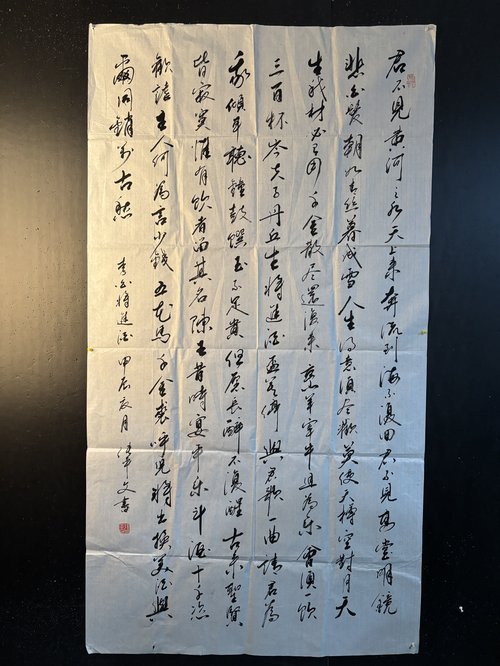 君不見黃河之水天上來奔流到海不復回君不見高堂明鏡
悲白髮朝如青絲暮成雪人生得意須盡歡莫使金樽空對月天
生我材必有用千金散盡還復來烹羊宰牛且為樂會須一飲
三百杯岑夫子丹丘生將進酒盃莫停與君歌一曲請君為
我傾耳聽鐘鼓饌玉不足貴但願長醉不復醒古來聖賢
皆寂寞惟有飲者留其名陳王昔時宴平樂斗酒十千恣
歡謔主人何為言少錢五花馬千金裘呼兒將出換美酒與
爾同銷萬古愁 李白將進酒 甲辰夏月 文書